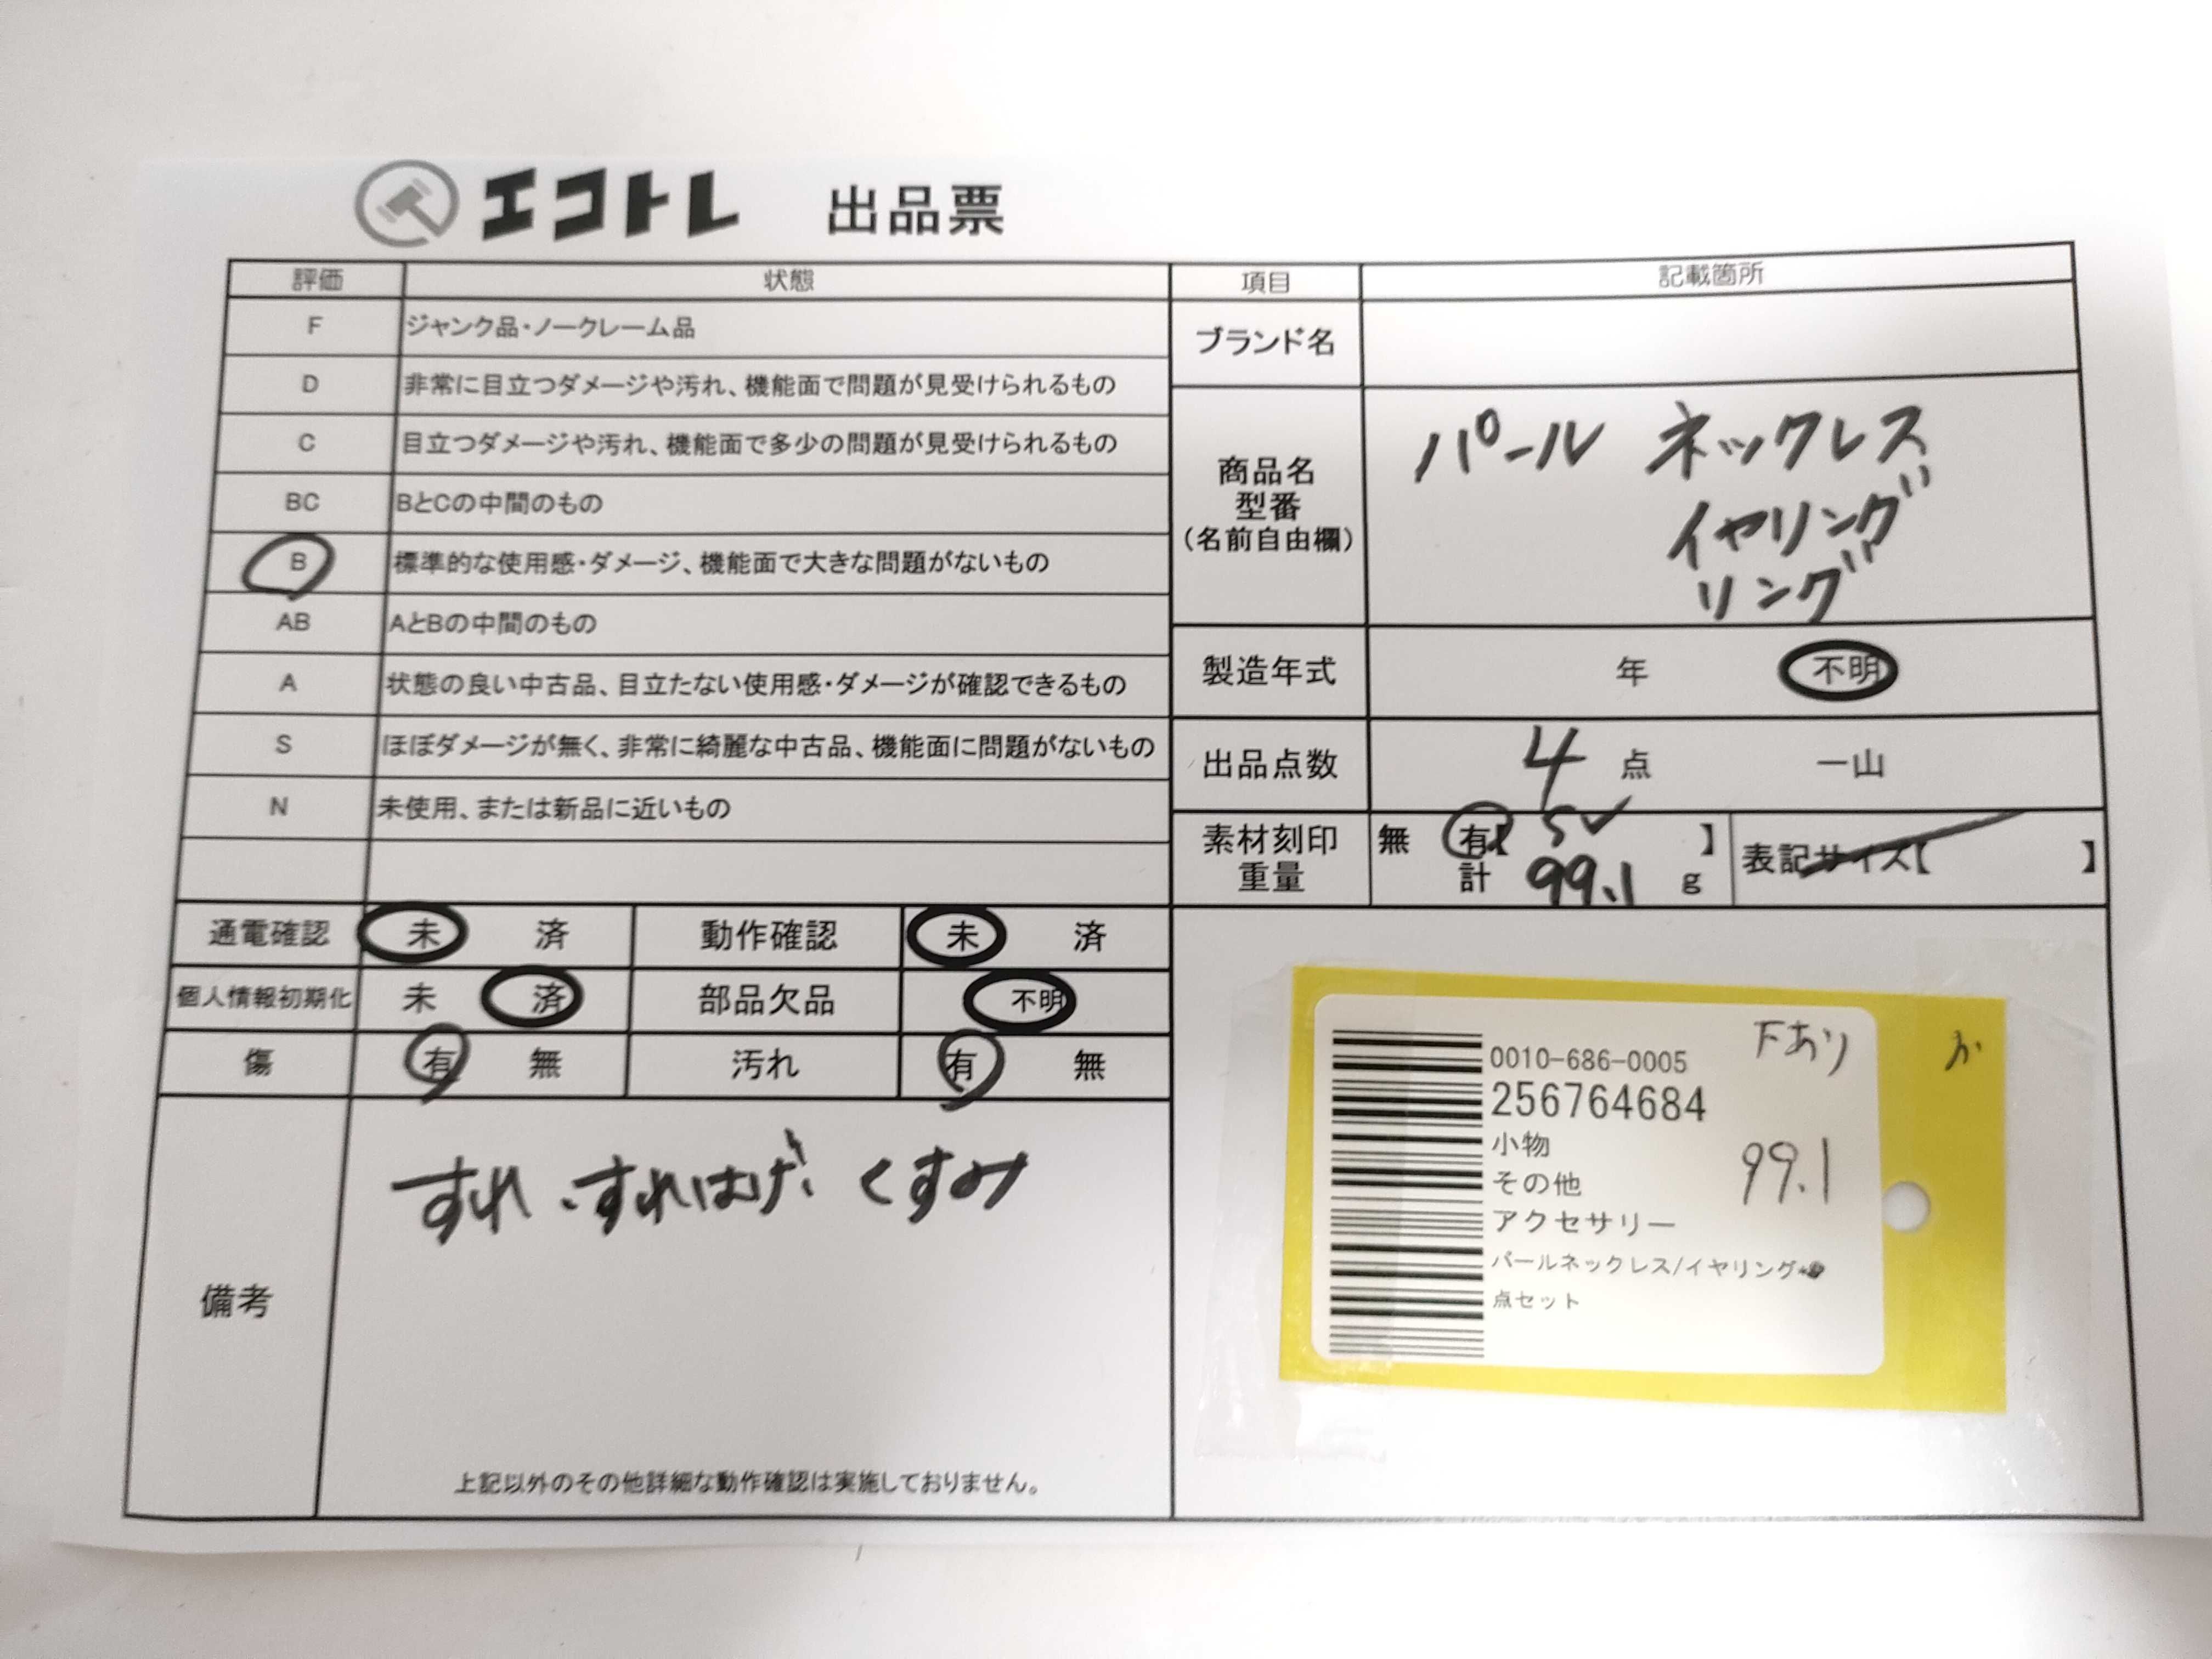 エコトレ 出品票
評価 状態 項目 記載箇所
F ジャンク品・ノークレーム品
D 非常に目立つダメージや汚れ、機能面で問題が見受けられるもの
C 目立つダメージや汚れ、機能面で多少の問題が見受けられるもの
BC BとCの中間のもの
B 標準的な使用感・ダメージ、機能面で大きな問題がないもの
AB AとBの中間のもの
A 状態の良い中古品、目立たない使用感・ダメージが確認できるもの
S ほぼダメージが無く、非常に綺麗な中古品、機能面に問題がないもの
N 未使用、または新品に近いもの
ブランド名
商品名
型番
(名前自由欄)
パール ネックレス
イヤリング
リング
製造年式 年 不明
出品点数 4 点 一山
素材刻印
重量
無 有【 SV 】
計 99.1 g
表記サイズ【 】
通電確認 未 済 動作確認 未 済
個人情報初期化 未 済 部品欠品 不明
傷 有 無 汚れ 有 無
備考
すれ、すれはげ、くすみ
上記以外のその他詳細な動作確認は実施しておりません。
下あり
0010-686-0005
256764684
小物
その他
99.1
アクセサリー
パールネックレス/イヤリング
点セット